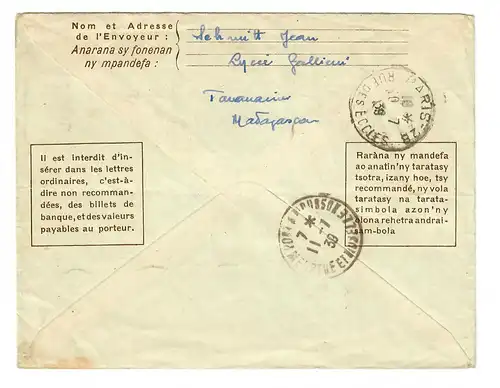 Nom et Adresse
de l'Envoyeur :
Anarana sy fonenan
ny mpandefa :
Schmitt Jean
Lycée Gallieni
Tananarive
Madagascar
PARIS-28
RUE DES ECLUSES
18 *
30 7
39
Il est interdit d'in-
sérer dans les lettres
ordinaires, c'est-à-
dire non recomman-
dées, des billets de
banque, et des valeurs
payables au porteur.
Raràna ny mandefa
ao anatin'ny taratasy
tsotra, izany hoe, tsy
recommandé, ny vola
taratasy na tarata-
simbola azon'ny
olona rehetra andrai-
sam-bola
7 *
11 - 7
39